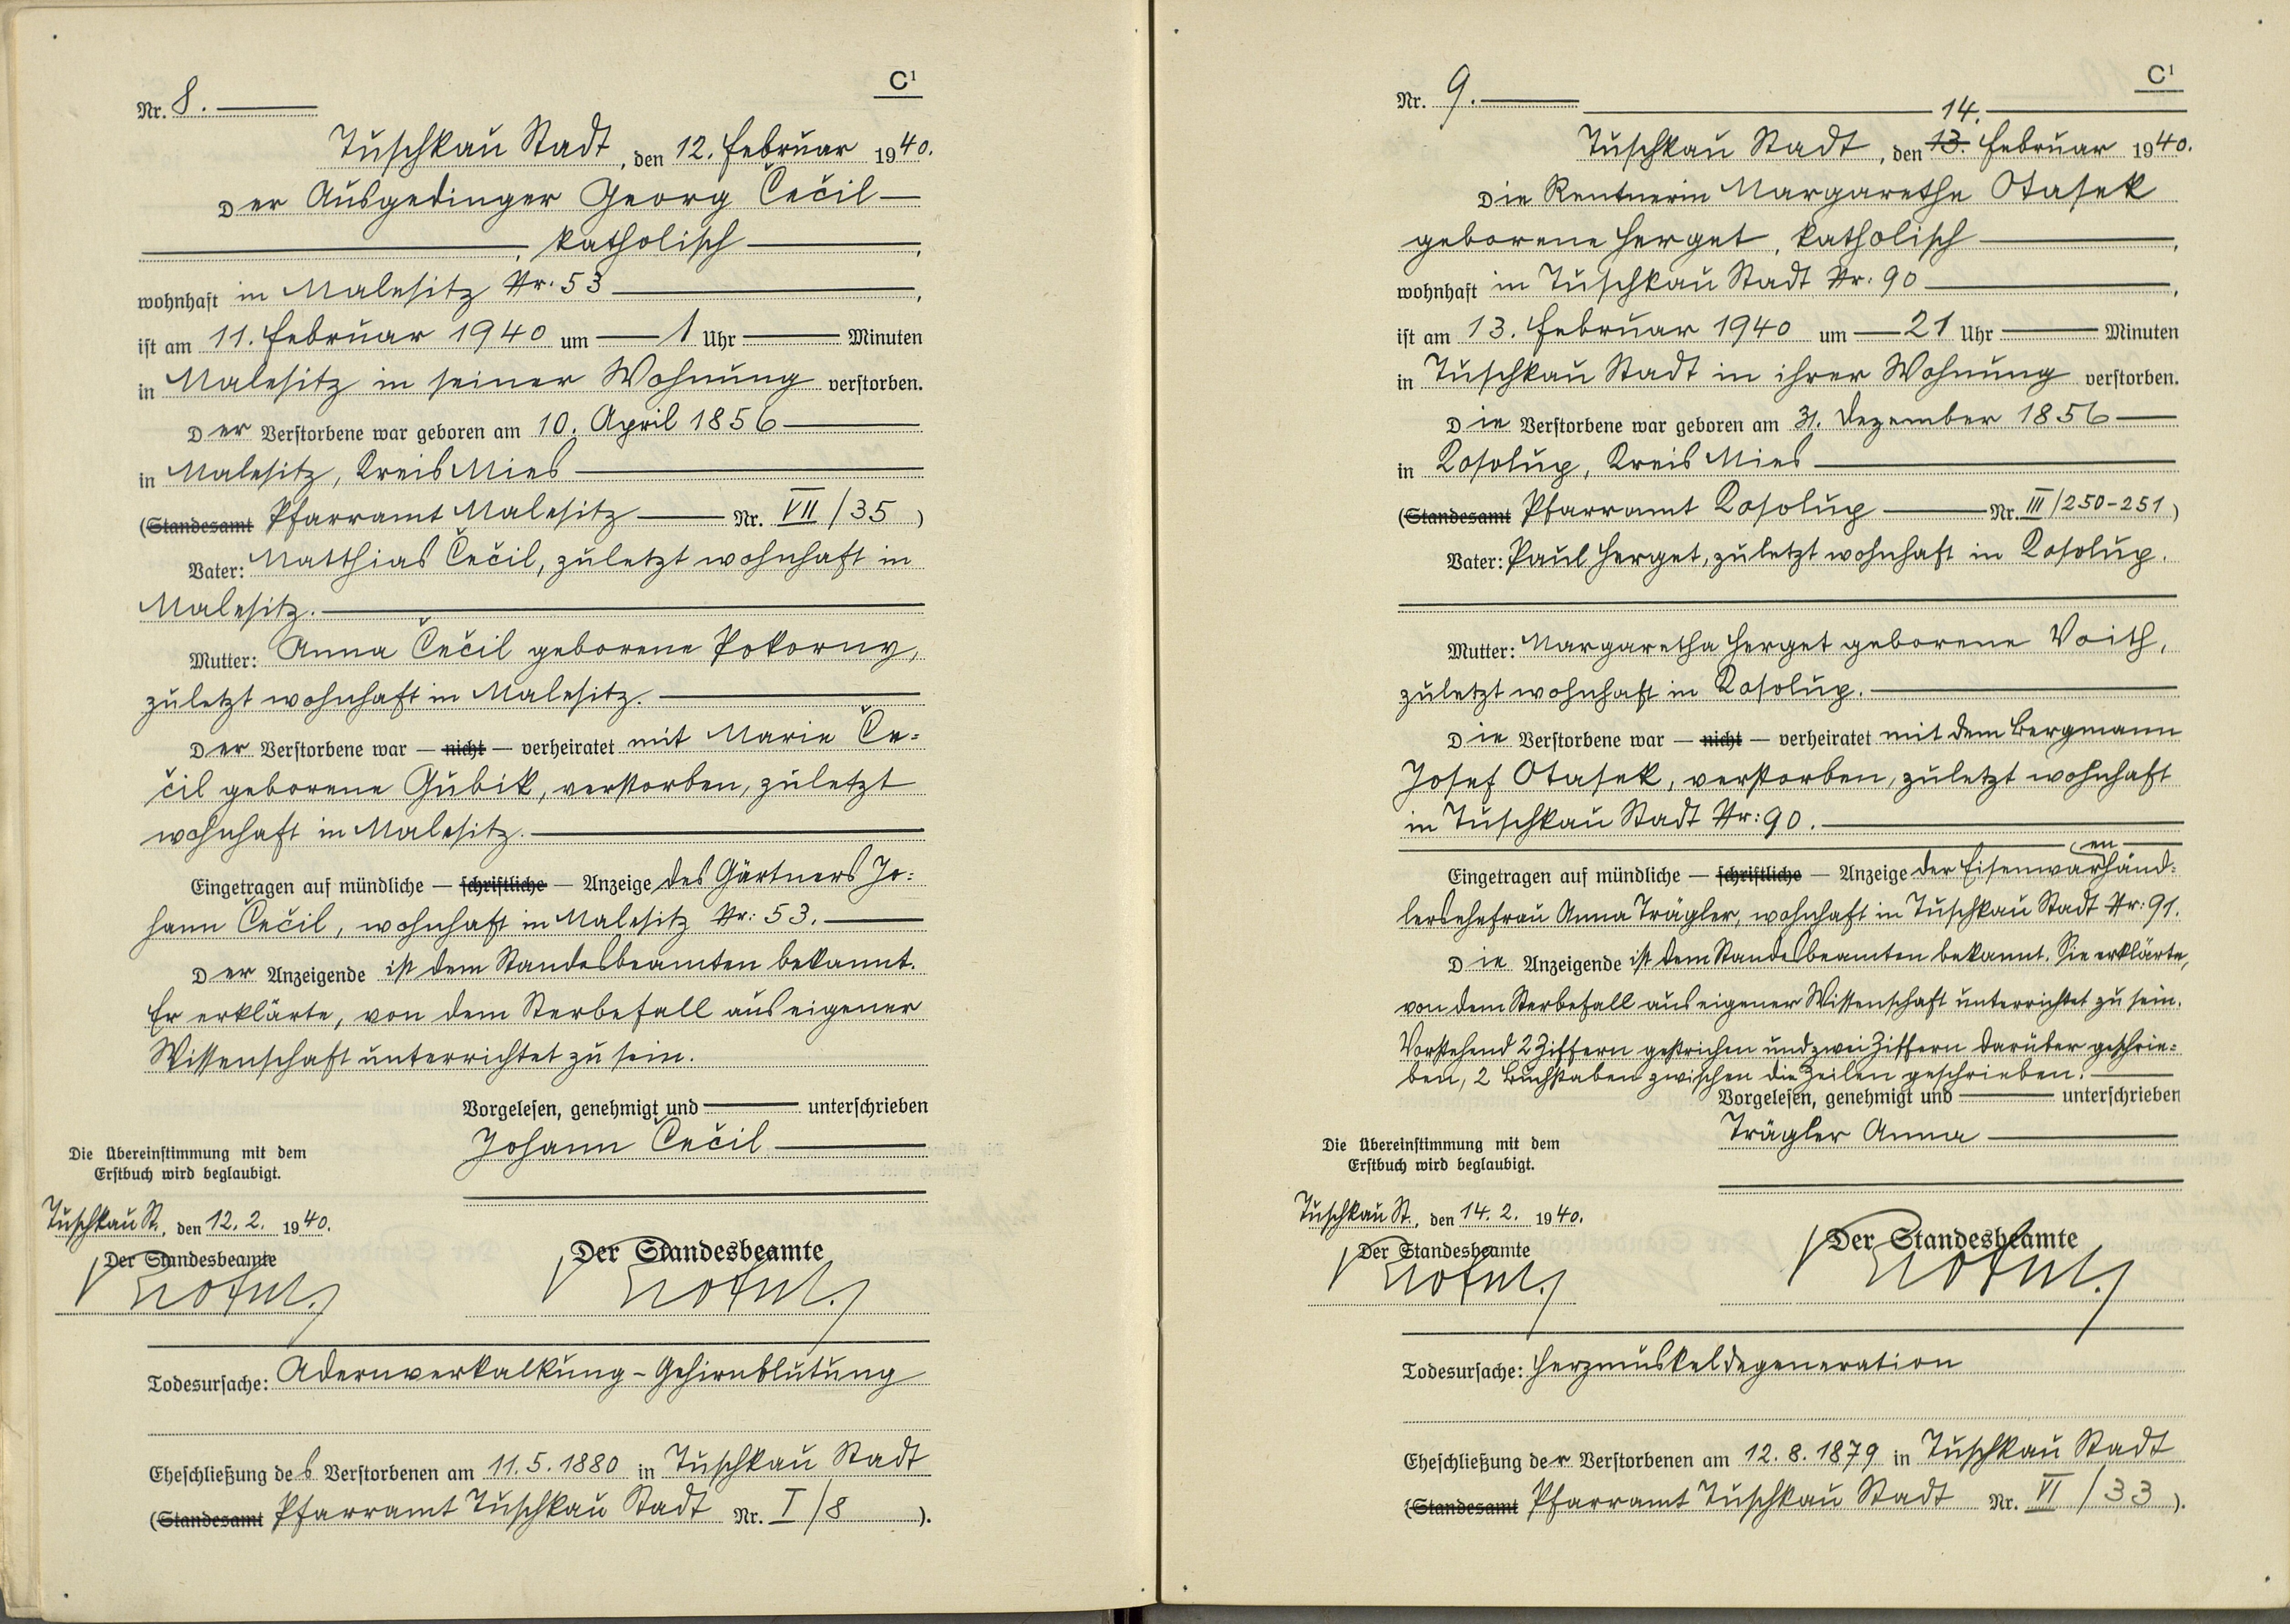 C¹
Nr. 8.
Tuschkau Stadt, den 12. Februar 1940.
Der Ausgedinger Georg Čečil
, katholisch ,
wohnhaft in Malesitz Nr. 53 ,
ist am 11. Februar 1940 um 1 Uhr Minuten
in Malesitz in seiner Wohnung verstorben.
Der Verstorbene war geboren am 10. April 1856
in Malesitz, Kreis Mies
(Standesamt Pfarramt Malesitz Nr. VII/35 )
Vater: Matthias Čečil, zuletzt wohnhaft in
Malesitz.
Mutter: Anna Čečil geborene Pokorny,
zuletzt wohnhaft in Malesitz.
Der Verstorbene war — nicht — verheiratet mit Marie Če=
čil geborene Gubik, verstorben, zuletzt
wohnhaft in Malesitz.
Eingetragen auf mündliche — schriftliche — Anzeige des Gärtners Jo=
hann Čečil, wohnhaft in Malesitz Nr: 53.
Der Anzeigende ist dem Standesbeamten bekannt.
Er erklärte, von dem Sterbefall aus eigener
Wissenschaft unterrichtet zu sein.
Vorgelesen, genehmigt und unterschrieben
Johann Čečil
Die Übereinstimmung mit dem
Erstbuch wird beglaubigt.
Tuschkau St., den 12. 2. 1940.
Der Standesbeamte
Der Standesbeamte
Todesursache: Adernverkalkung - Gehirnblutung
Eheschließung des Verstorbenen am 11. 5. 1880 in Tuschkau Stadt
(Standesamt Pfarramt Tuschkau Stadt Nr. I/8 ).
C¹
Nr. 9.
14.
Tuschkau Stadt, den 13. Februar 1940.
Die Rentnerin Margarethe Otasek
geborene Herget, katholisch ,
wohnhaft in Tuschkau Stadt Nr: 90 ,
ist am 13. Februar 1940 um 21 Uhr Minuten
in Tuschkau Stadt in ihrer Wohnung verstorben.
Die Verstorbene war geboren am 31. Dezember 1856
in Kosolup, Kreis Mies
(Standesamt Pfarramt Kosolup Nr. III/250-251 )
Vater: Paul Herget, zuletzt wohnhaft in Kosolup.
Mutter: Margaretha Herget geborene Voith,
zuletzt wohnhaft in Kosolup.
Die Verstorbene war — nicht — verheiratet mit dem Bergmann
Josef Otasek, verstorben, zuletzt wohnhaft
in Tuschkau Stadt Nr: 90.
en
Eingetragen auf mündliche — schriftliche — Anzeige der Eisenwarhänd=
lersehefrau Anna Trägler, wohnhaft in Tuschkau Stadt Nr: 91.
Die Anzeigende ist dem Standesbeamten bekannt. Sie erklärte,
von dem Sterbefall aus eigener Wissenschaft unterrichtet zu sein.
Vorstehend 2 Ziffern gestrichen und zwei Ziffern darüber geschrie=
ben, 2 Buchstaben zwischen die Zeilen geschrieben.
Vorgelesen, genehmigt und unterschrieben
Trägler Anna
Die Übereinstimmung mit dem
Erstbuch wird beglaubigt.
Tuschkau St., den 14. 2. 1940.
Der Standesbeamte
Der Standesbeamte
Todesursache: Herzmuskeldegeneration
Eheschließung der Verstorbenen am 12. 8. 1879 in Tuschkau Stadt
(Standesamt Pfarramt Tuschkau Stadt Nr. VI/33 ).